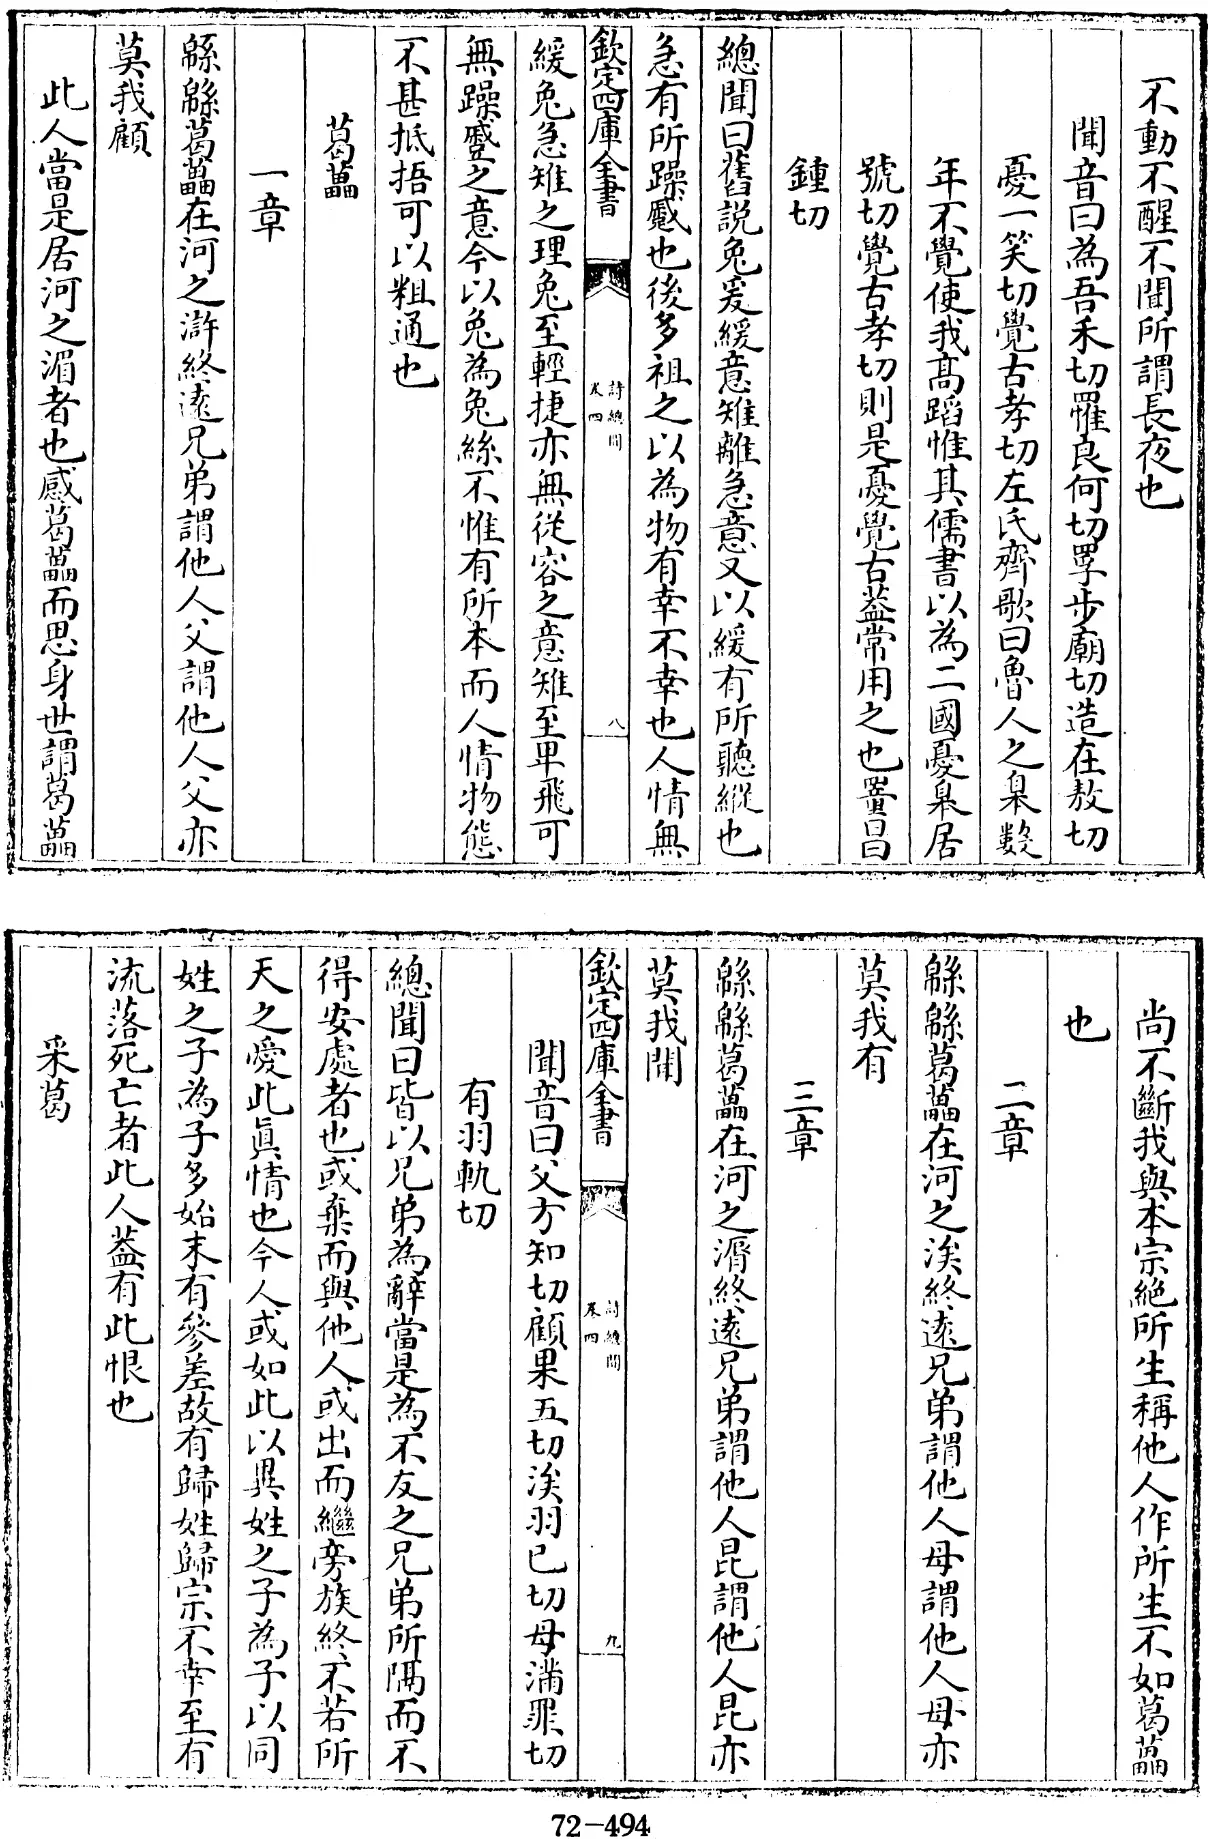 不動不醒不聞所謂長夜也
聞音曰為吾禾切罹良何切罦步廟切造在敖切
憂一笑切覺古孝切左氏齊歌曰魯人之臯數
年不覺使我髙蹈惟其儒書以為二國憂臯居
號切覺古孝切則是憂覺古葢常用之也罿昌
鍾切
總聞曰舊説兔爰緩意雉離急意又以緩有所聽縱也
急有所躁蹙也後多祖之以為物有幸不幸也人情無
欽定四庫全書
詩總聞
卷四
八
緩兔急雉之理兔至輕捷亦無從容之意雉至卑飛可
無躁蹙之意今以兔為兔絲不惟有所本而人情物態
不甚抵捂可以粗通也
葛藟
一章
緜緜葛藟在河之滸終逺兄弟謂他人父謂他人父亦
莫我顧
此人當是居河之湄者也感葛藟而思身世謂葛藟
尚不斷我與本宗絶所生稱他人作所生不如葛藟
也
二章
緜緜葛藟在河之涘終逺兄弟謂他人母謂他人母亦
莫我有
三章
緜緜葛藟在河之漘終逺兄弟謂他人昆謂他人昆亦
莫我聞
欽定四庫全書
詩總聞
卷四
九
聞音曰父方知切顧果五切涘羽已切母滿罪切
有羽軌切
總聞曰皆以兄弟為辭當是為不友之兄弟所隔而不
得安處者也或棄而與他人或出而繼旁族終不若所
天之愛此眞情也今人或如此以異姓之子為子以同
姓之子為子多始末有參差故有歸姓歸宗不幸至有
流落死亡者此人葢有此恨也
采葛
72-494